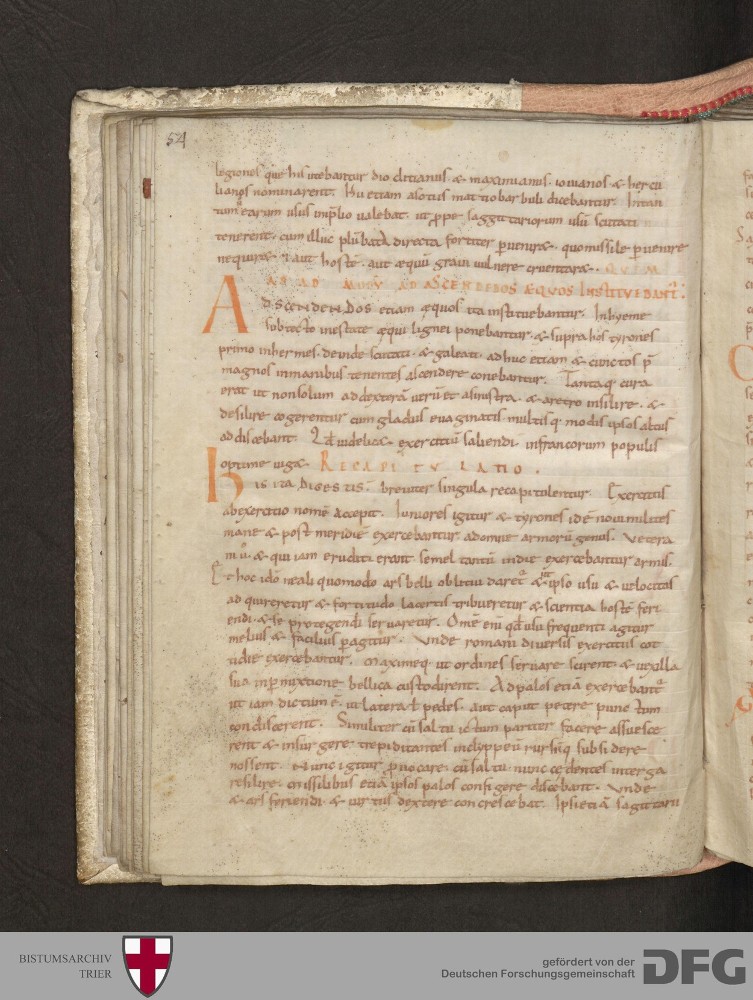 54
legiones que his utebantur dio cletianus & maximianus iouianos & hercu
lianos nominarent. Hii etiam a totius mattiobarbuli dicebantur. Intan
tum earum usus imp̄lio ualebat ut prope saggittariorum usū scutati
tenerent. cum illuc plūbata directa fortiter puenir&. quo missile puenire
nequir& & aut hostē aut æquū graui uulnere cruentar&. QUEM
AD MODŪ AD ASCENDEDOS ÆQUOS INSTITUEBANT̄.
ADSCENDENDOS etiam æquos ita instituebantur. In hyeme
sub tecto in estate æqui lignei ponebantur. & supra hos tyrones
primo inhermes. deinde scutati. & galeati. adhuc etiam & cunctos p̄
magnos in manibus tenentes ascendere conebantur. Tantaq; cura
erat ut non solum ad dexterā uerū et a sinistra. & a retro insilire. &
desilire cogerentur cum gladiis euaginatis multisq; modis ipsos actus
addiscebant. Qđ uidelic& exercitiū saliendi in francorum populis
optime uig&. RECAPITULATIO.
His ita digestis. breuiter singula recapitulentur. Exercitus
ab exercitio nomē accepit. Iuniores igitur & tyrones idē noui milites
mane & post meridiē exercebantur ad omne armorū genus. Vetera
ni ū & qui iam eruditi erant semel tantū in die exercebantur armis.
Et hoc ideo ne ali quomodo ars belli obliuiu daret & ipso usu & uelocitas
ad quireretur & fortitudo lacertis tribueretur & scientia hostē feri
endi. & se protegendi seruaretur. Omē eni qđ usu frequenti agitur
melius & facilius pagitur. Unde romani diuersis exercitiis cot
tidie exercebantur. maximeq; ut ordines seruare scirent. & uexilla
sua in pmixtione bellica custodirent. Ad palos etiā exercebant̄
ut iam dictum ē. ut latera t pedes aut caput petere punctum
condiscerent. Similiter cū saltu ictum pariter facere assuesce
rent & insurgere trepiditantes in clyppeū rursūq; subsidere
nossent. Nunc igitur prouocare. cū saltu nunc cedentes interga
resilire. missilibus etiā ipsos palos configere discebant. Unde
& ars feriendi. & uirtus dextere concrescebat. Ipsi etiā sagittarii
BISTUMSARCHIV
TRIER
gefördert von der
Deutschen Forschungsgemeinschaft
DFG